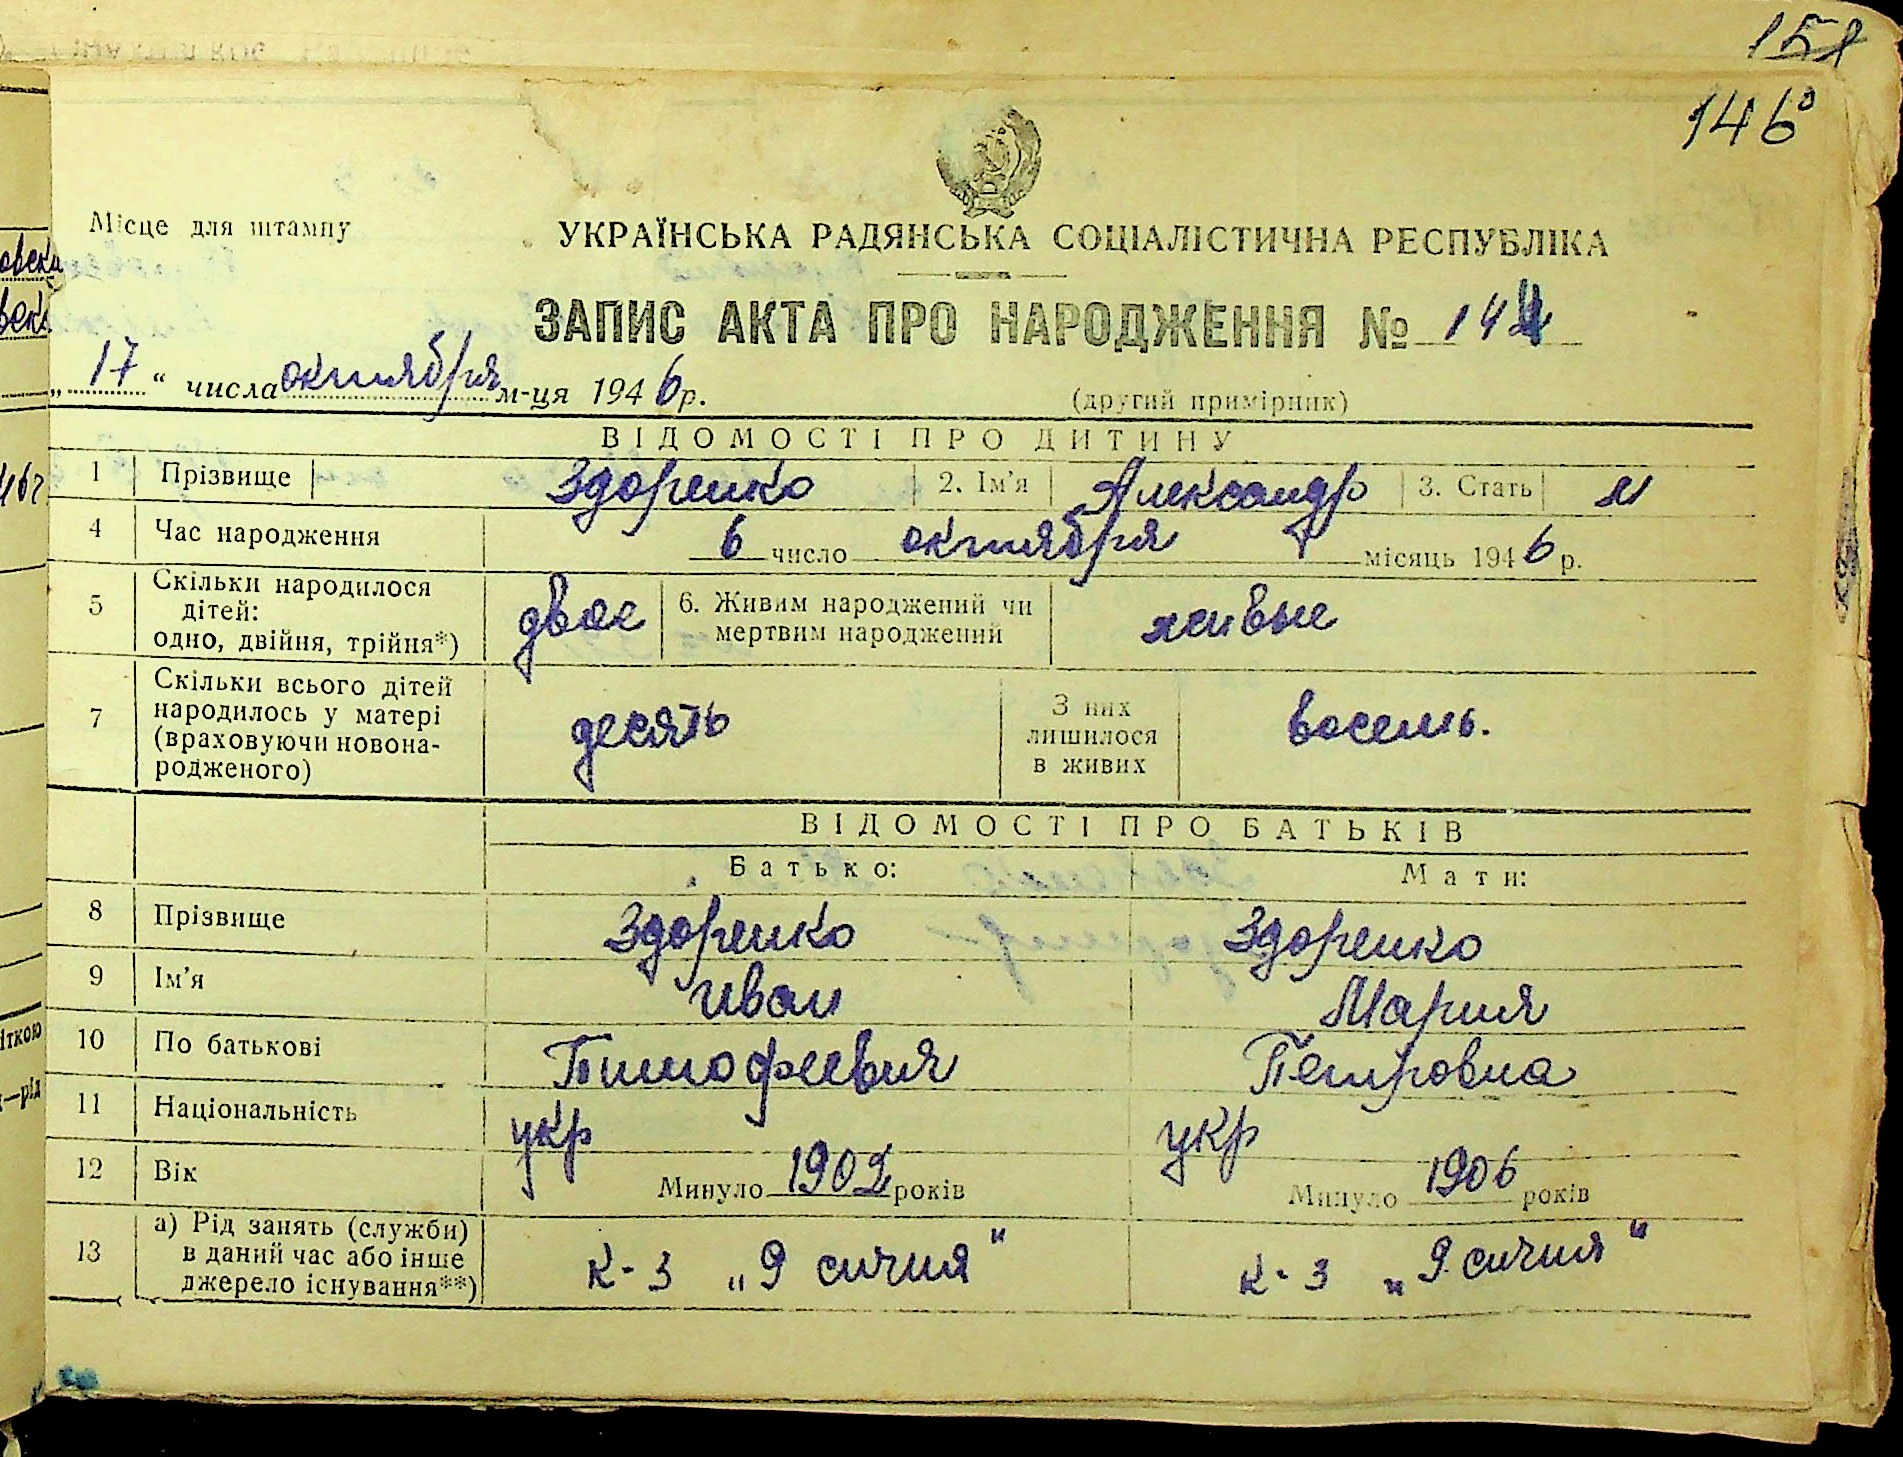 146
Місце для штампу
УКРАЇНСЬКА РАДЯНСЬКА СОЦІАЛІСТИЧНА РЕСПУБЛІКА
ЗАПИС АКТА ПРО НАРОДЖЕННЯ № 144
„17“ числа октября м-ця 1946 р.
(другий примірник)
ВІДОМОСТІ ПРО ДИТИНУ
1 Прізвище Здоренко 2. Ім'я Александр 3. Стать м
4 Час народження 6 число октября місяць 1946 р.
5 Скільки народилося дітей: одно, двійня, трійня*) двое 6. Живим народжений чи мертвим народжений живые
7 Скільки всього дітей народилось у матері (враховуючи новонародженого) десять З них лишилося в живих восемь.
ВІДОМОСТІ ПРО БАТЬКІВ
Батько: Мати:
8 Прізвище Здоренко Здоренко
9 Ім'я Иван Мария
10 По батькові Тимофеевич Петровна
11 Національність укр укр
12 Вік Минуло 1902 років Минуло 1906 років
13 а) Рід занять (служби) в даний час або інше джерело існування**) к-з „9 сичня" к-з „9 сичня"